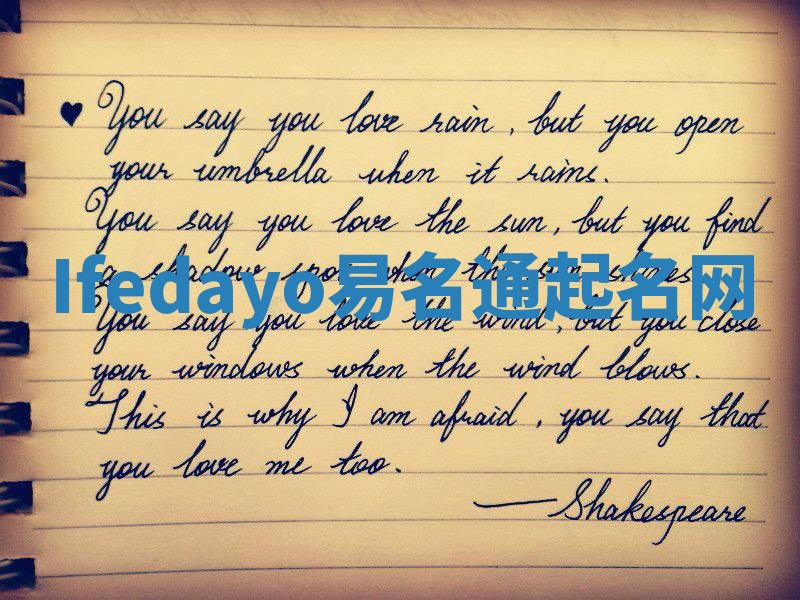 ♥ You say you love rain, but you open
your umbrella when it rains.
You say you love the sun, but you find
a shadow spot when the sun shines.
Ifedayo易名通起名网
You say you love the wind, but you close
your windows when the wind blows.
This is why I am afraid, you say that
you love me too.
—Shakespeare